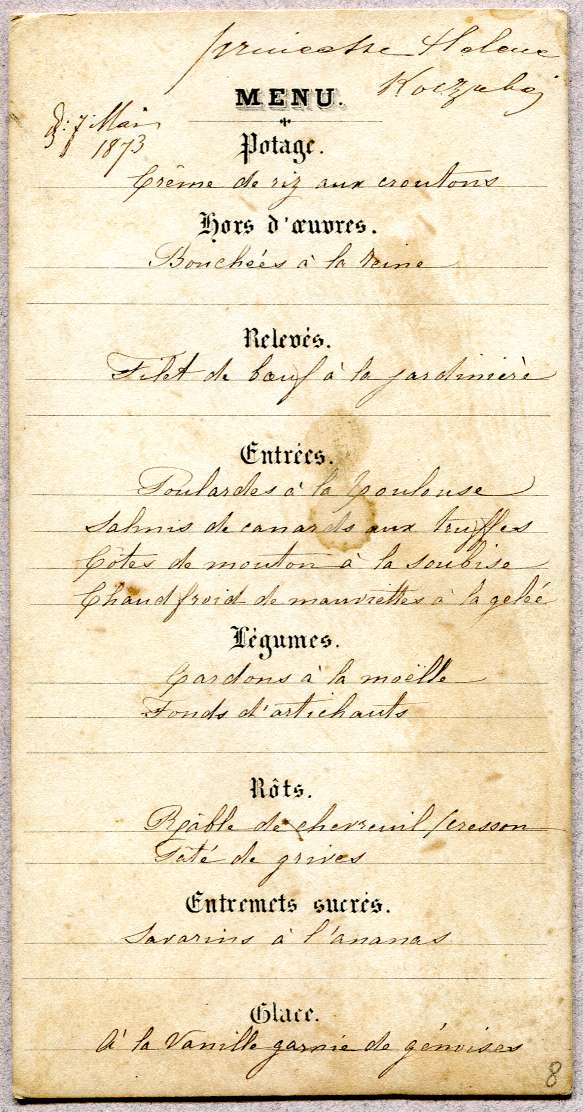 princesse Helene
Kotzubej
MENU.
d: 7 Mai
1873
Potage.
Crême de riz aux croutons
Hors d'œuvres.
Bouchées à la reine
Relevés.
Filet de bœuf à la jardinière
Entrées.
Poulardes à la Toulouse
Salmis de canards aux truffes
Côtes de mouton à la soubise
Chaud froid de mauviettes à la gelée
Légumes.
Cardons à la moëlle
Fonds d'artichauts
Rôts.
Râble de chevreuil / cresson
Pâté de grives
Entremets sucrés.
Savarins à l'ananas
Glace.
à la Vanille garnie de génoises
8